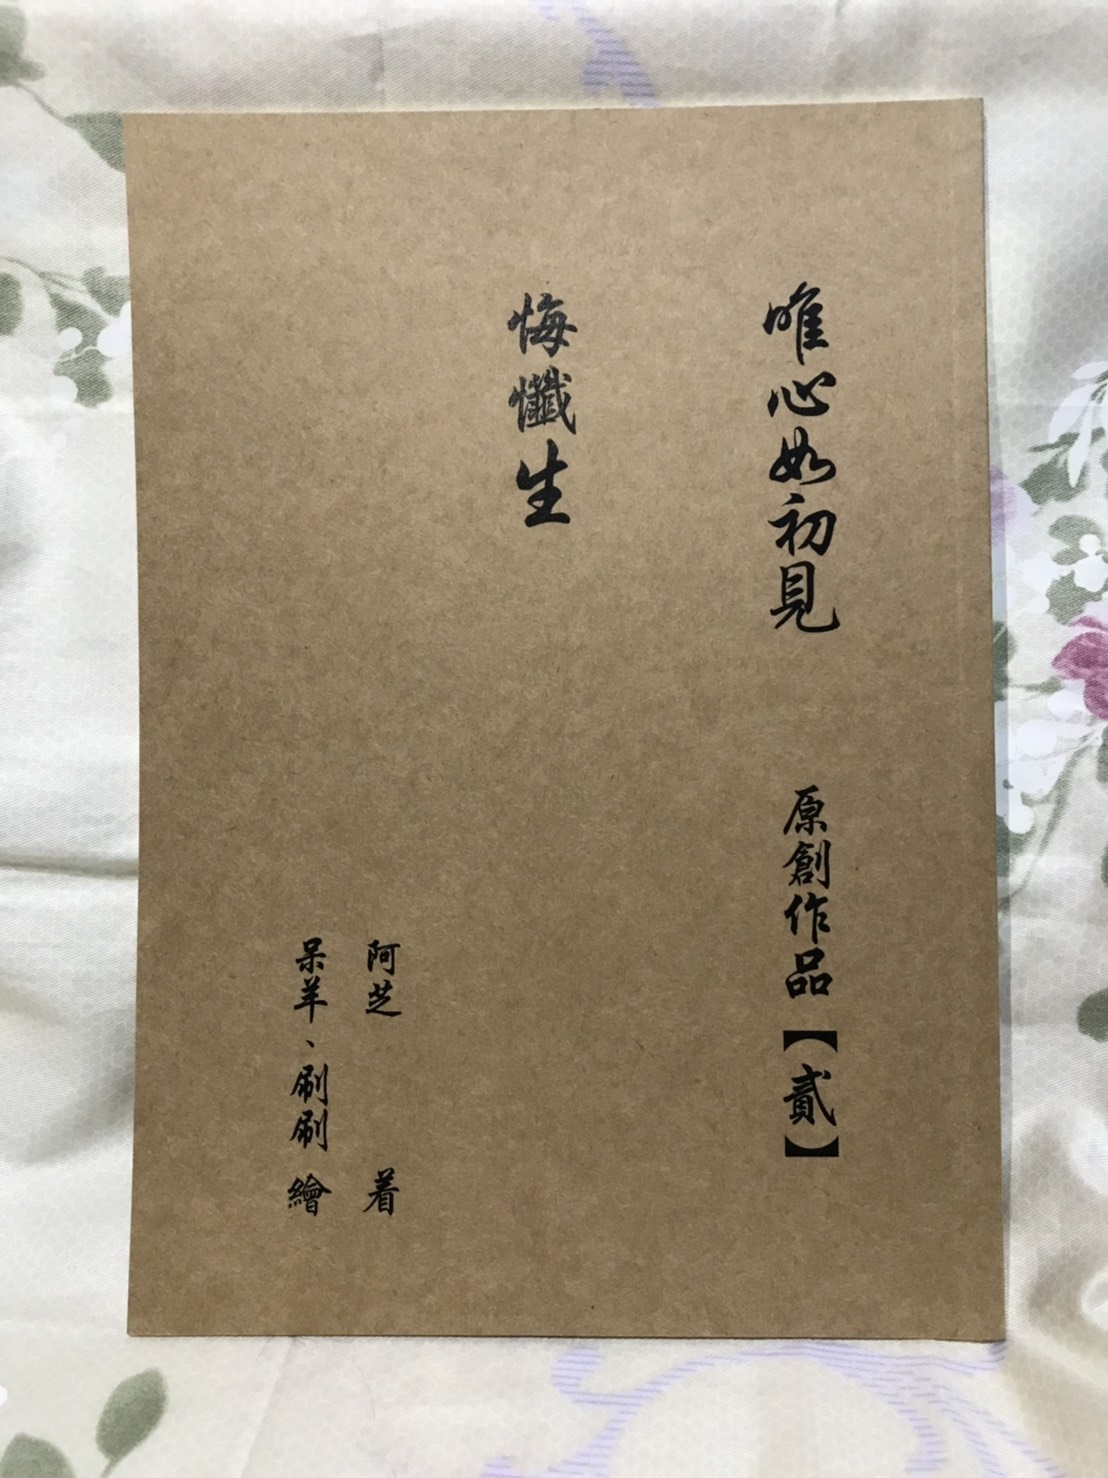 唯心如初見
原創作品【貳】
悔懺生
阿芝 着
呆羊、刷刷 繪